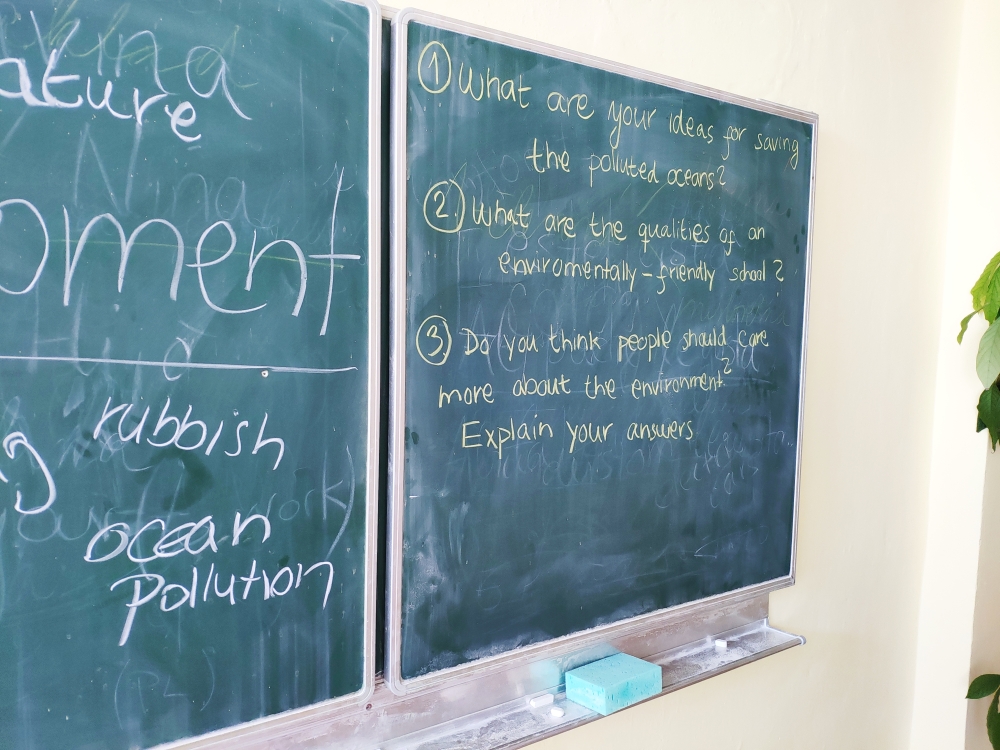 ature
oment
rubbish
g
ocean
pollution
① What are your ideas for saving
the polluted oceans?
② What are the qualities of an
enviromentally-friendly school?
③ Do you think people should care
more about the environment?
Explain your answers